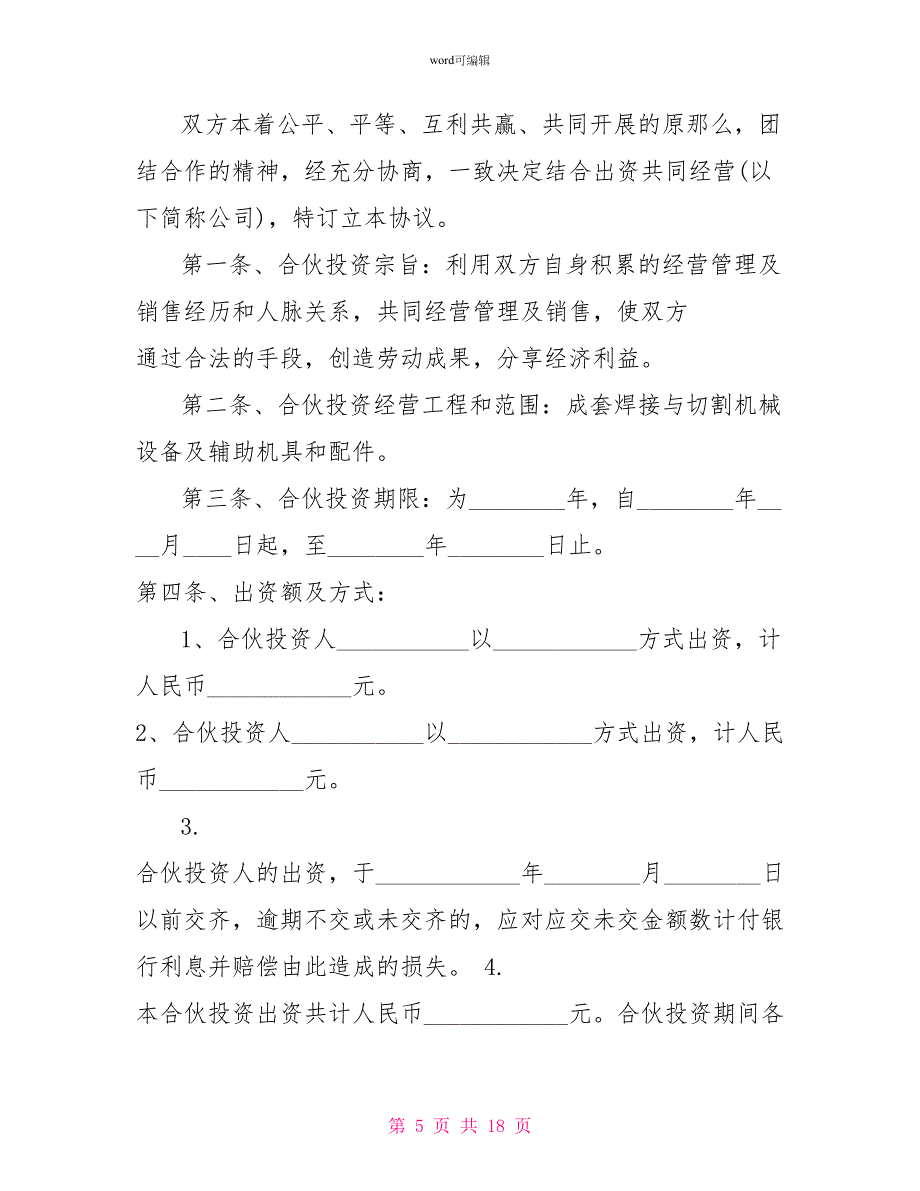 word可编辑
双方本着公平、平等、互利共赢、共同开展的原那么，团
结合作的精神，经充分协商，一致决定结合出资共同经营(以
下简称公司)，特订立本协议。
第一条、合伙投资宗旨：利用双方自身积累的经营管理及
销售经历和人脉关系，共同经营管理及销售，使双方
通过合法的手段，创造劳动成果，分享经济利益。
第二条、合伙投资经营工程和范围：成套焊接与切割机械
设备及辅助机具和配件。
第三条、合伙投资期限：为________年，自________年__
__月____日起，至________年________日止。
第四条、出资额及方式：
1、合伙投资人___________以____________方式出资，计
人民币____________元。
2、合伙投资人___________以____________方式出资，计人民
币____________元。
3.
合伙投资人的出资，于____________年________月________日
以前交齐，逾期不交或未交齐的，应对应交未交金额数计付银
行利息并赔偿由此造成的损失。 4.
本合伙投资出资共计人民币____________元。合伙投资期间各
第 5 页 共 18 页